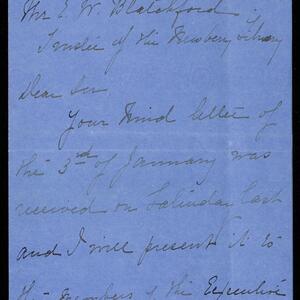 Mr E. W. Blatchford.
Trustee of the Newberry Library
Dear Sir
Your kind letter of
the 3rd of January was
received on Saturday last
and I will present it to
the members of the Executive